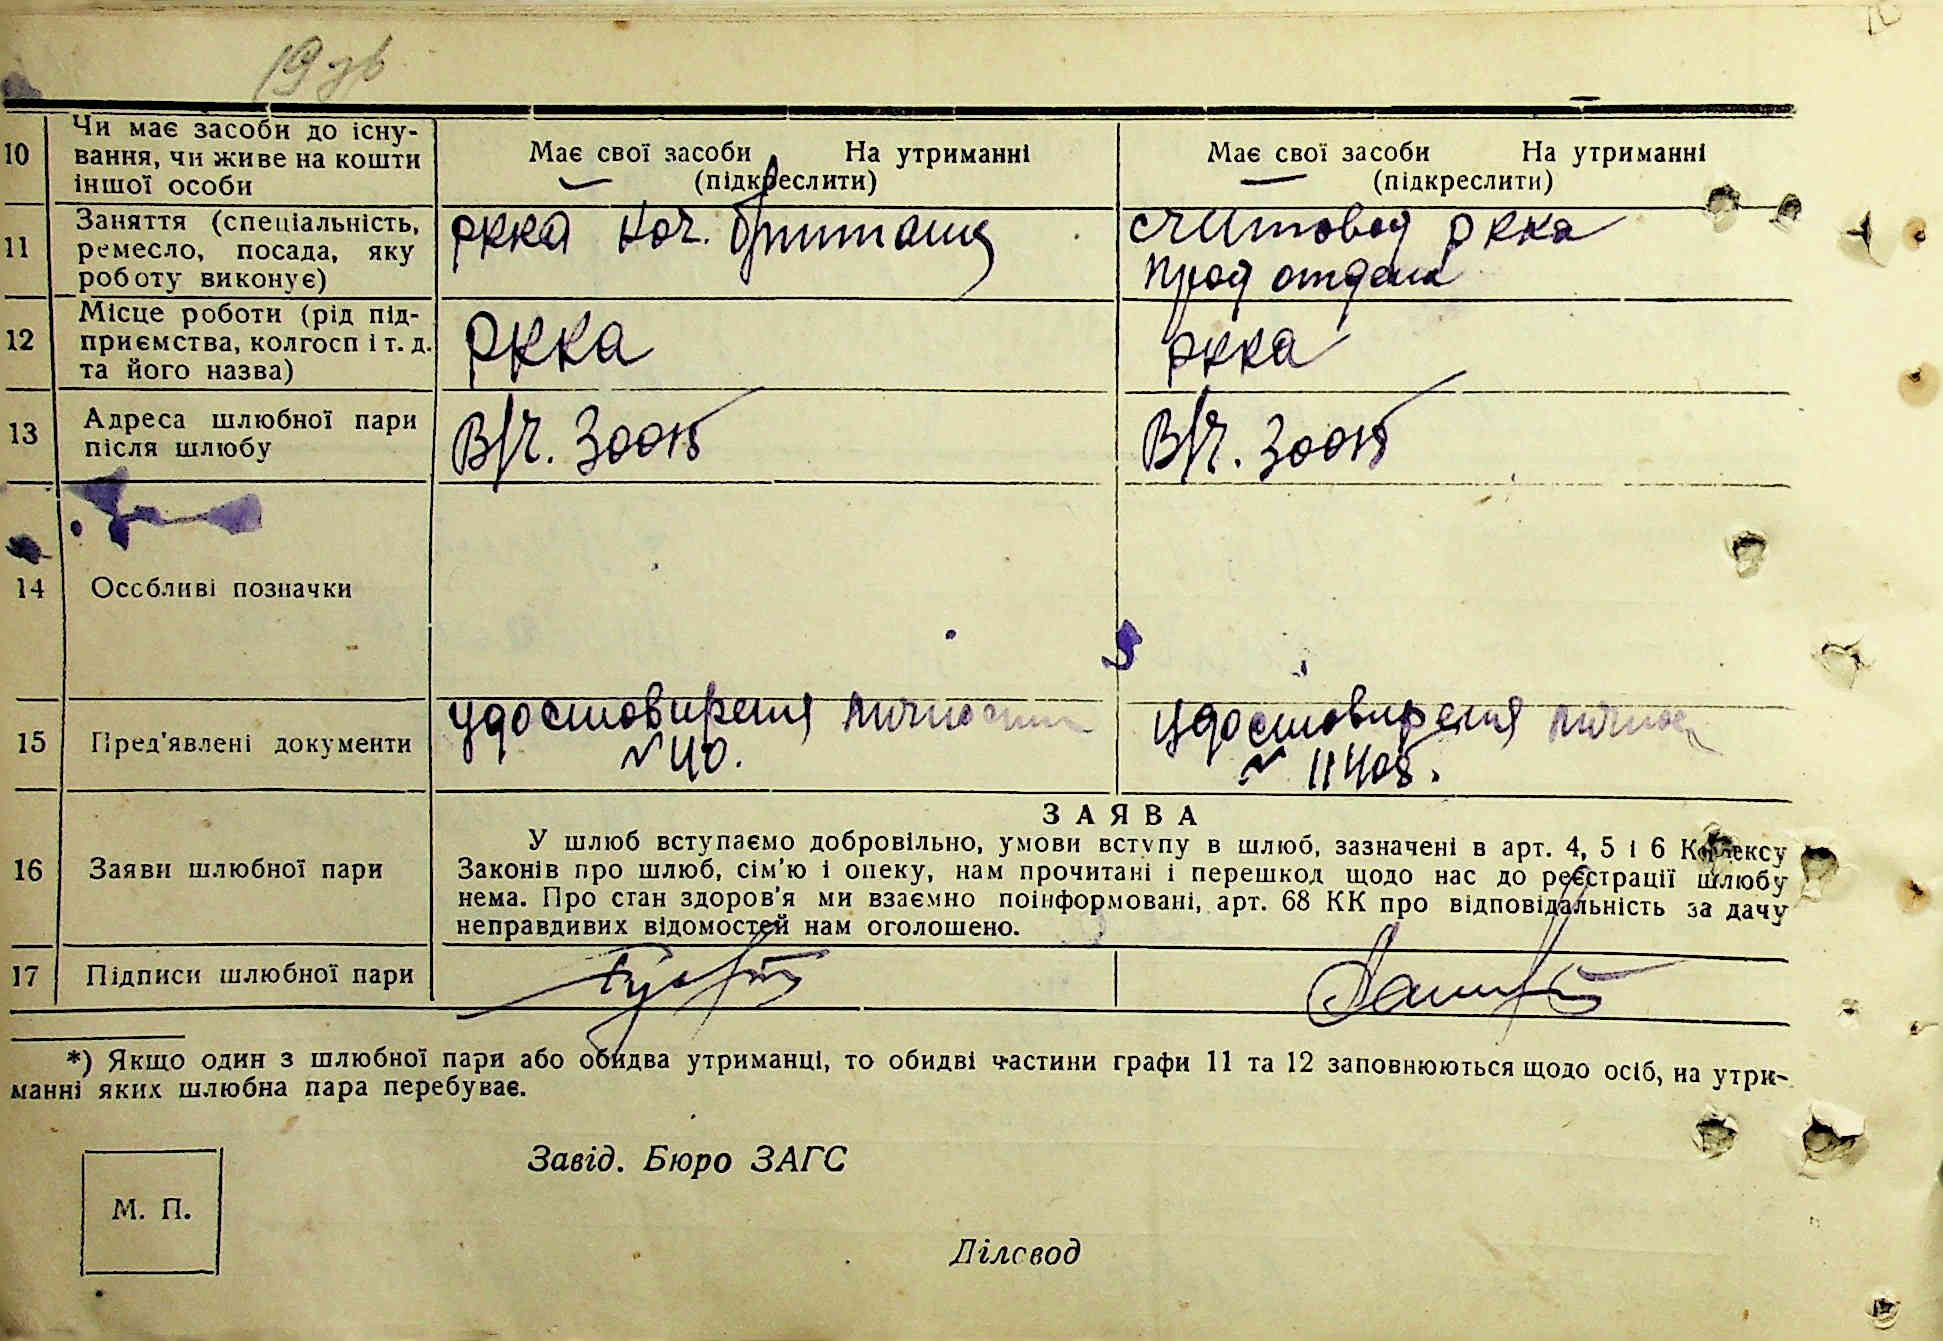 10 Чи має засоби до існу-
вання, чи живе на кошти
іншої особи
Має свої засоби На утриманні
(підкреслити)
Має свої засоби На утриманні
(підкреслити)
11 Заняття (спеціальність,
ремесло, посада, яку
роботу виконує)
ркка нач.
считовод ркка
прод отдела
12 Місце роботи (рід під-
приємства, колгосп і т. д.
та його назва)
РККА
ркка
13 Адреса шлюбної пари
після шлюбу
В/Ч.
В/Ч.
14 Особливі позначки
15 Пред'явлені документи
удостовирения личности
№ 40.
удостовирения личнос
№ 11408.
16 Заяви шлюбної пари
ЗАЯВА
У шлюб вступаємо добровільно, умови вступу в шлюб, зазначені в арт. 4, 5 і 6 Кодексу
Законів про шлюб, сім'ю і опеку, нам прочитані і перешкод щодо нас до реєстрації шлюбу
нема. Про стан здоров'я ми взаємно поінформовані, арт. 68 КК про відповідальність за дачу
неправдивих відомостей нам оголошено.
17 Підписи шлюбної пари
*) Якщо один з шлюбної пари або обидва утриманці, то обидві частини графи 11 та 12 заповнюються щодо осіб, на утри-
манні яких шлюбна пара перебуває.
Завід. Бюро ЗАГС
М. П.
Діловод